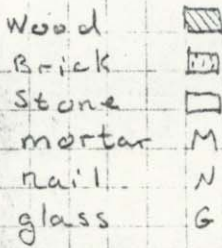 Wood
Brick
Stone
mortar M
nail N
glass G